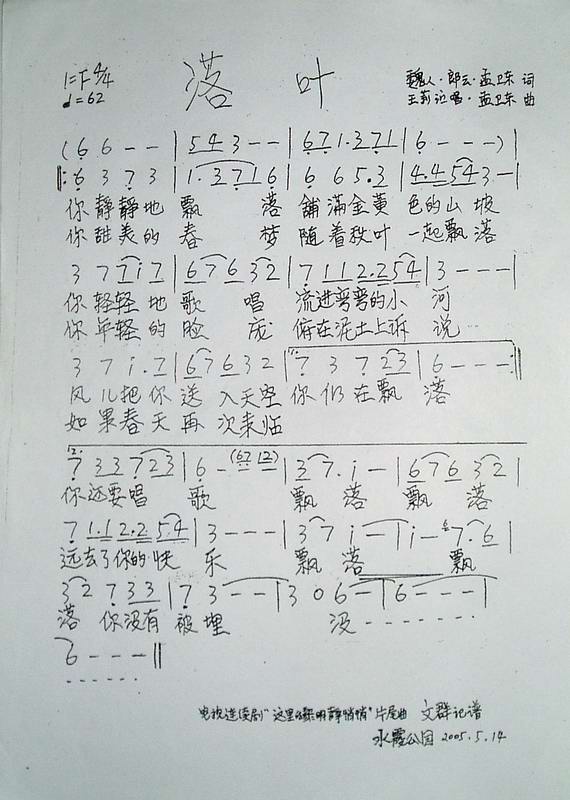 落叶
1=F 4/4
♩=62
魏人·郎云·孟卫东 词
王莉 记唱·孟卫东 曲
(6 6 - - | 5 4 3 - - | 6 7 1. 3 7 1 | 6 - - - )|
‖: 6 3 7 3 | 1. 3 7 1 6 | 6 6 5. 3 | 4. 4 5 4 3 - |
你静静地飘 落 铺满金黄 色的山坡
你甜美的春 梦 随着秋叶 一起飘落
3 7 7 i 7 | 6 7 6 3 2 | 7 1 1 2. 2 5 4 | 3 - - - |
你轻轻地歌 唱 流进弯弯的小 河
你年轻的脸 庞 俯在泥土上诉 说
3 7 i. 7 | 6 7 6 3 2 | 1. 7 3 7 2 3 | 6 - - - :‖
风儿把你送入天空 你们在飘 落
如果春天再次来临
2. 7 3 3 7 2 3 | 6 - (6 7 1 2) | 3 7. i - | 6 7 6 3 2 |
你还要唱 歌 飘 落 飘 落
7 1. 1 2. 2 5 4 | 3 - - - | 3 7 i - | i - 7. 6 |
远去了你的快 乐 飘 落 飘
3 2 7 3 3 | 7 3 - - | 3 0 6 - | 6 - - - |
落 你没有 被埋 没 - - - - - - -
6 - - - ‖
- - - - - -
电视连续剧"这里的黎明静悄悄"片尾曲 文群记谱
水霞公园 2005.5.14